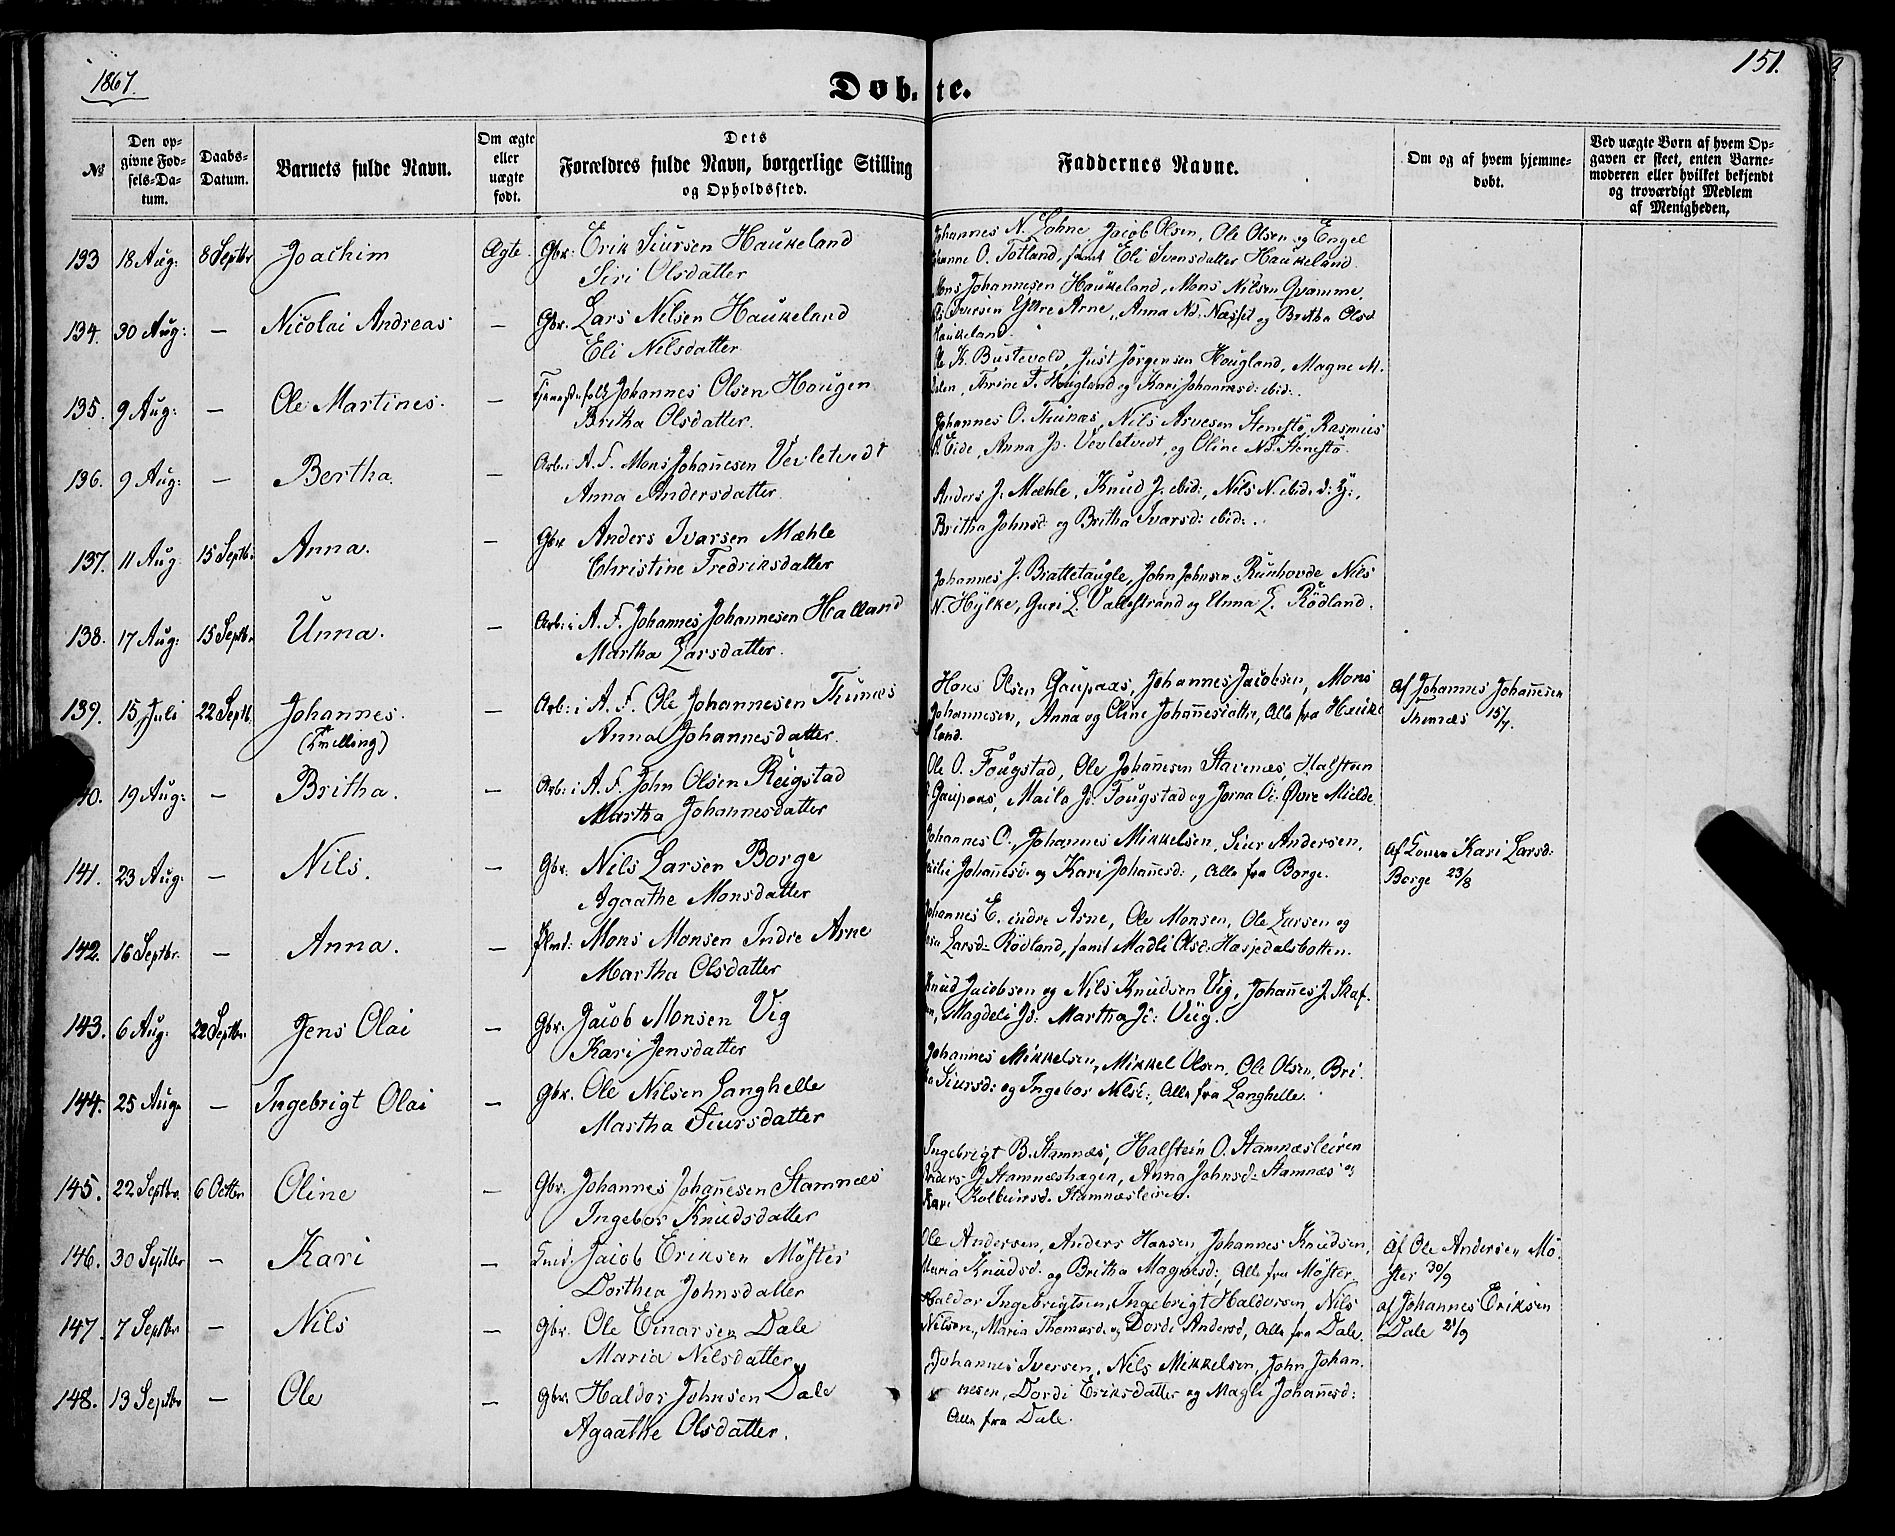 1867.
Døbte.
151.
No
Den opgivne Fødsels-Datum.
Daabs-Datum.
Barnets fulde Navn.
Om ægte eller uægte født.
Dets Forældres fulde Navn, borgerlige Stilling og Opholdssted.
Faddernes Navne.
Om og af hvem hjemmedøbt.
Ved uægte Børn af hvem Opgaven er skeet, enten Barnemoderen eller hvilket bekjendt og troværdigt Medlem af Menigheden,
133 18 Aug: 8 Septbr Joachim Ægte Gbr: Erik Siursen Haukeland
Siri Olsdatter
Johannes N. Jacob Olsen, Ole Olsen og Engel
O. Totland, samt Eli Svensdatter Haukeland.
134. 30 Aug: — Nicolai Andreas — Gbr. Lars Nilsen Haukeland
Eli Nilsdatter
Mons Johannesen Haukeland, Mons Nilsen Qvamme,
Iversen Yttre Arne, Anna Nd. Næsset og Britha Olsd
Haukeland.
135. 9 Aug: — Ole Martines. — Tjenestefolk Johannes Olsen Hougen
Britha Olsdatter.
Ole K. Bustevold, Just Jørgensen Hougland, Magne M.
Thrine T. Hougland og Kari Johannesd: ibid:.
136. 9 Aug: — Bertha. — Arb: i A. F. Mons Johanesen Vevletvedt
Anna Andersdatter.
Johannes O. Thunæs, Nils Arnesen Stenstø, Rasmus
Eide, Anna Jd. Vevletvedt, og Oline Nd. Stenstø.
137. 11 Aug. 15 Septb. Anna. — Gbr Anders Ivarsen Mæhle
Christine Fredriksdatter
Anders J. Mæhle, Knud J. ibid:, Nils N. ibid. d: y:,
Britha Johnsd. og Britha Ivarsd: ibid:.
138. 17 Aug: 15 Septbr Unna. — Arb: i A. F. Johannes Johannesen Halland
Martha Larsdatter.
Johannes J. Brattetaugle, John Johnsen Runhovde, Nils
N. Hylke, Guri L. Vallestrand og Unna L. Rødland.
139. 15 Juli 22 Septb. Johannes. — Arb: i A. F. Ole Johannesen Thunæs
(Tvilling) Anna Johannesdatter.
Hans Olsen Gaupaas, Johannes Jacobsen, Mons
Johannesen, Anna og Oline Johannesdattre, Alle fra Hauke
land.
Af Johannes Johannesen
Thunæs 15/7.
40. 19 Aug: — Britha. — Arb: i A. F. John Olsen Reigstad
Martha Johannesdatter
Ole O. Fougstad, Ole Johannesen Stavenæs, Halsteen
Gaupaas, Maila Jd. Fougstad og Jorna Øvre Mielde.
141. 23 Aug. — Nils. — Gbr. Nils Larsen Borge
Agaathe Monsdatter
Johannes O., Johannes Mikkelsen, Siur Andersen,
Johanesd. og Kari Johanesd:, Alle fra Borge.
Af Konen Kari Larsd:
Borge 23/8
142. 16 Septbr. — Anna. — Mons Monsen Indre Arne
Martha Olsdatter
Johannes E. indre Arne, Ole Monsen, Ole Larsen og
Larsd. Rødland, samt Madli Olsd: Hasjedalsbotten.
143. 6 Aug. 22 Septbr. Jens Olai — Gbr. Jacob Monsen Vig
Kari Jensdatter
Knud Jacobsen og Nils Knudsen Vig, Johanes J. Skaf-
Magdeli Jd: Martha Jd: Viig.
144. 25 Aug. — Ingebrigt Olai — Gbr. Ole Nilsen Langhelle
Martha Siursdatter
Johannes Mikkelsen, Mikkel Olsen, Ole Olsen, Bri-
Siursd: og Ingebor Nilsd:, Alle fra Langhelle.
145. 22 Septbr. 6 Octbr Oline — Gbr. Johannes Johanesen Stamnæs
Ingebor Knudsdatter
Ingebrigt B. Stamnæs, Halstein O. Stamnæsleiren
Anders J Stamnæshagen, Anna Johnsd. Stamnæs og
Kari Kolbeinsd. Stamnæsleiren.
146. 30 Septbr — Kari — Jacob Eriksen Møster
Dorthea Johnsdatter
Ole Andersen, Anders Hansen, Johannes Knudsen,
Maria Knudsd. og Britha Magnesd:, Alle fra Møster.
Af Ole Andersen Mø-
ster 30/9
147. 7 Septbr — Nils — Gbr. Ole Einarsen Dale
Maria Nilsdatter
Haldor Ingebrigtsen, Ingebrigt Haldorsen, Nils
Nilsen, Maria Thomasd. og Dordi Andersd, Alle fra Dale.
af Johannes Eriksen
Dale 21/9
148. 13 Septbr — Ole — Gbr. Haldor Johnsen Dale
Agaathe Olsdatter.
Johannes Iversen, Nils Mikkelsen, John Johan-
nesen, Dordi Eriksdatter og Magli Johannesd:
Alle fra Dale.